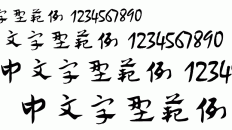 字型範例 1234567890
文字型範例 1234567890
中文字型範例 1234
中文字型範例